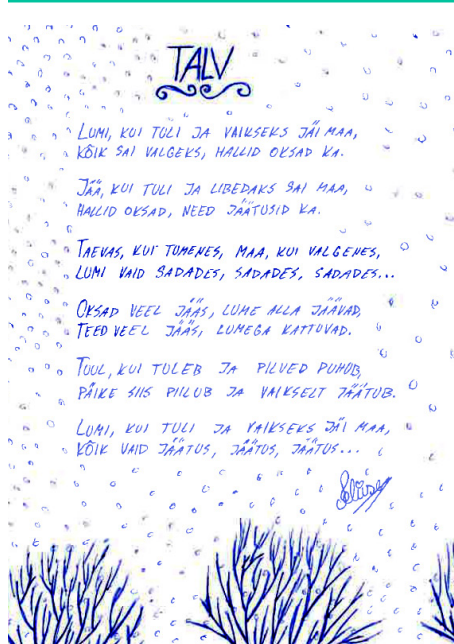 TALV
LUMI, KUI TULI JA VAIKSEKS JÄI MAA,
KÕIK SAI VALGEKS, HALLID OKSAD KA.
JÄÄ, KUI TULI JA LIBEDAKS SAI MAA,
HALLID OKSAD, NEED JÄÄTUSID KA.
TAEVAS, KUI TUMENES, MAA, KUI VALGENES,
LUMI VAID SADADES, SADADES, SADADES...
OKSAD VEEL JÄÄS, LUME ALLA JÄÄVAD,
TEED VEEL JÄÄS, LUMEGA KATTUVAD.
TUUL, KUI TULEB JA PILVED PUHUB,
PÄIKE SIIS PIILUB JA VAIKSELT JÄÄTUB.
LUMI, KUI TULI JA VAIKSEKS JÄI MAA,
KÕIK VAID JÄÄTUS, JÄÄTUS, JÄÄTUS...